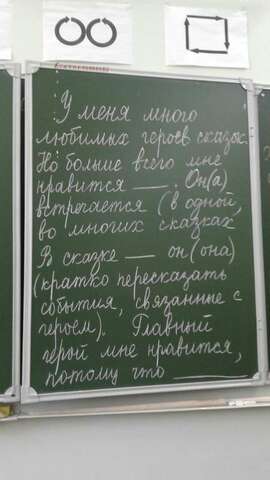 У меня много
любимых героев сказок.
Но больше всего мне
нравится ___. Он(а)
встречается (в одной,
во многих сказках
В сказке ___ он (она)
(кратко пересказать
события, связанные с
героем). Главный
герой мне нравится,
потому что ___